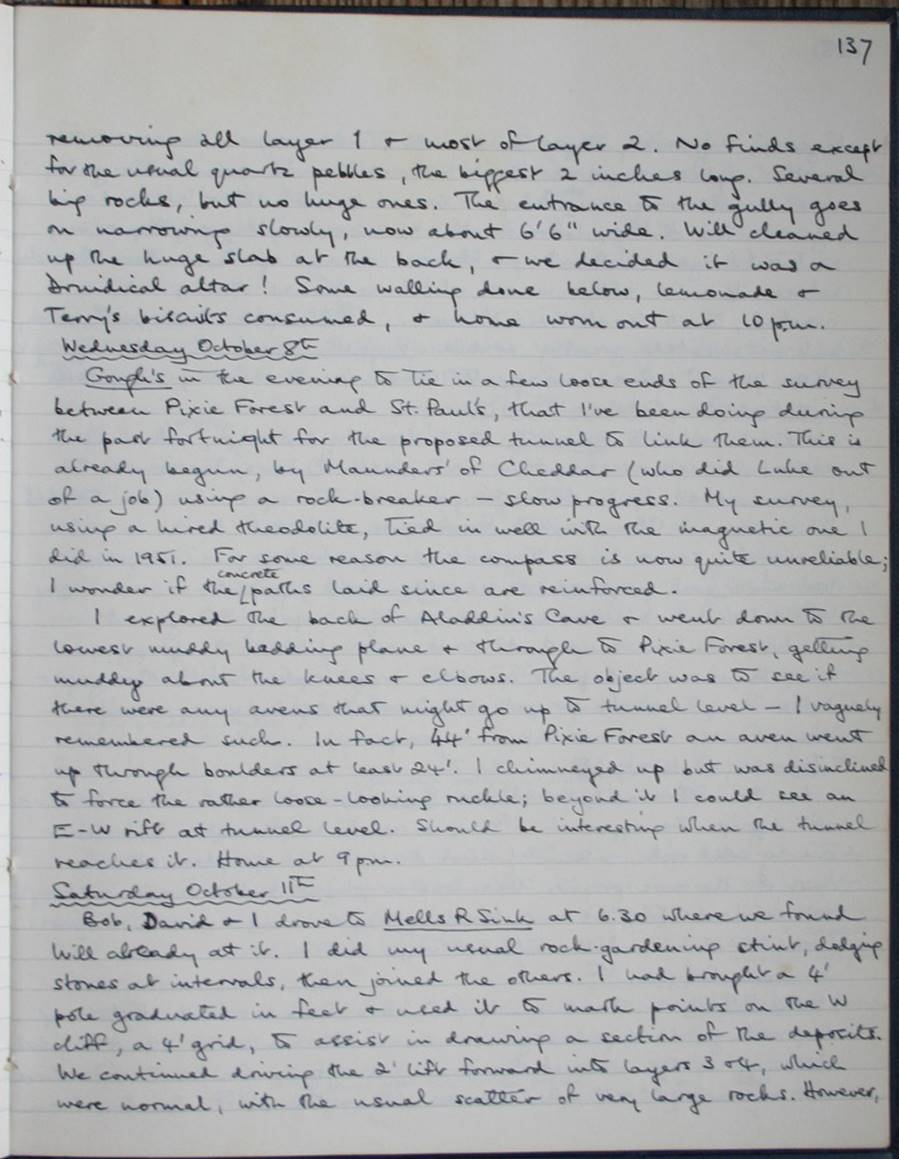 137
removing all layer 1 + most of layer 2. No finds except
for the usual quartz pebbles, the biggest 2 inches long. Several
big rocks, but no huge ones. The entrance to the gully goes
on narrowing slowly, now about 6'6" wide. Will cleaned
up the huge slab at the back, + we decided it was a
Druidical altar! Some walling done below, lemonade +
Terry's biscuits consumed, + home worn out at 10 p.m.
Wednesday October 8th
Gough's in the evening to tie in a few loose ends of the survey
between Pixie Forest and St. Paul's, that I've been doing during
the past fortnight for the proposed tunnel to link them. This is
already begun, by Maunders' of Cheddar (who did Luke out
of a job) using a rock-breaker – slow progress. My survey,
using a hired theodolite, tied in well with the magnetic one I
did in 1951. For some reason the compass is now quite unreliable;
I wonder if the concrete paths laid since are reinforced.
I explored the back of Aladdin's Cave + went down to the
lowest muddy bedding plane + through to Pixie Forest, getting
muddy about the knees + elbows. The object was to see if
there were any avens that might go up to tunnel level – I vaguely
remembered such. In fact, 44' from Pixie Forest an aven went
up through boulders at least 24'. I chimneyed up but was disinclined
to force the rather loose-looking ruckle; beyond it I could see an
E-W rift at tunnel level. Should be interesting when the tunnel
reaches it. Home at 9 pm.
Saturday October 11th
Bob, David + I drove to Mells R Sink at 6.30 where we found
Will already at it. I did my usual rock-gardening stint, dodging
stones at intervals, then joined the others. I had brought a 4'
pole graduated in feet + used it to mark points on the W
cliff, a 4' grid, to assist in drawing a section of the deposits.
We continued driving the 2' lift forward into layers 3 + 4, which
were normal, with the usual scatter of very large rocks. However,